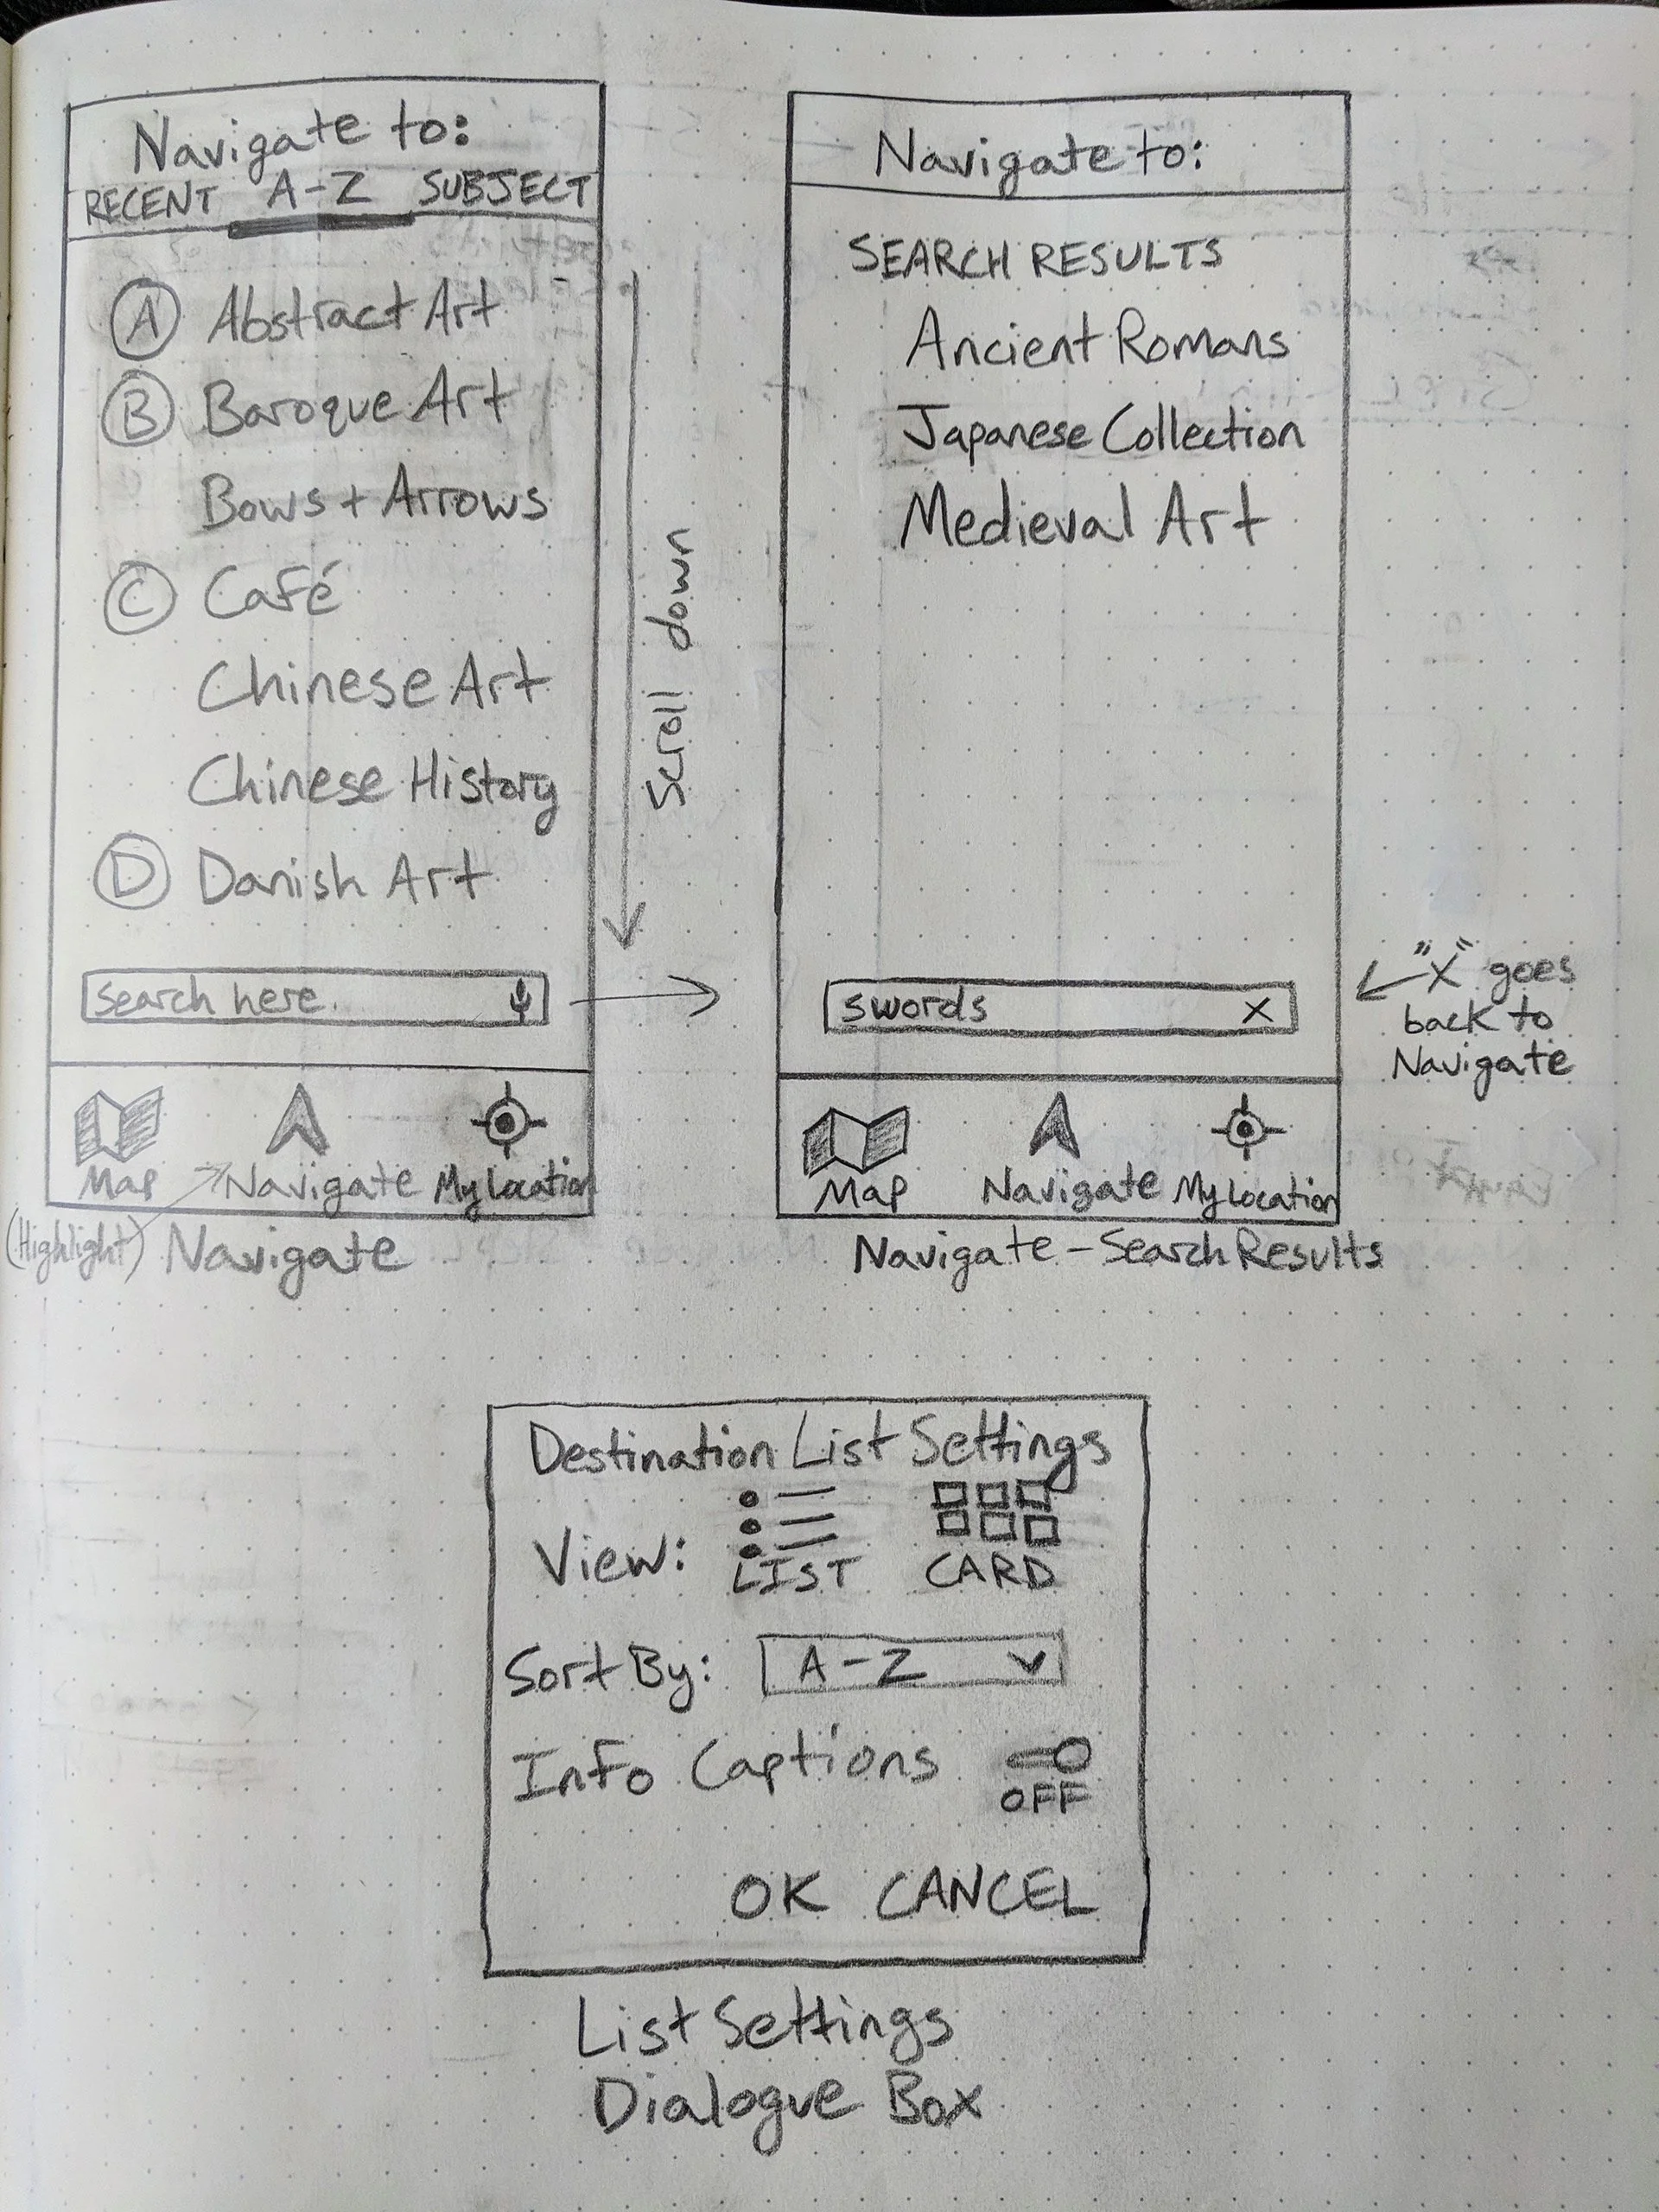 Navigate to:
RECENT A-Z SUBJECT
A Abstract Art
B Baroque Art
Bows + Arrows
C Café
Chinese Art
Chinese History
D Danish Art
search here.
Map Navigate My Location
(Highlight)
Navigate
Scroll down
Navigate to:
SEARCH RESULTS
Ancient Romans
Japanese Collection
Medieval Art
swords X
Map Navigate My Location
Navigate - Search Results
"X" goes
back to
Navigate
Destination List Settings
View: LIST CARD
Sort By: A-Z
Info Captions OFF
OK CANCEL
List Settings
Dialogue Box